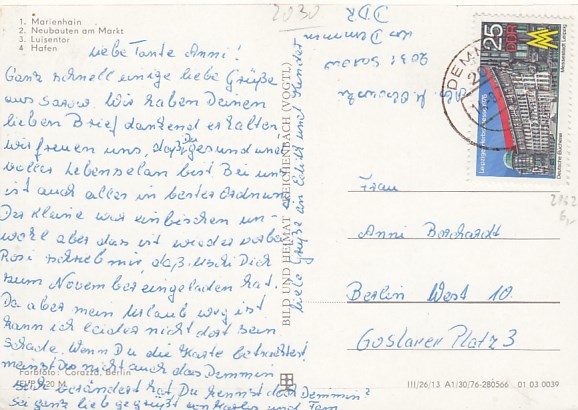 1. Marienhain
2. Neubauten am Markt
3. Luisentor
4 Hafen
2030
Liebe Tante Anni!
Ganz schnell einige liebe Grüße
aus Sarow. Wir haben Deinen
lieben Brief dankend erhalten,
wir freuen uns, daß Du gesund und
voller Lebenselan bist Bei uns
ist auch alles in bester Ordnung
Der Kleine war ein bischen un-
wohl aber das ist wieder vorbei
Rosi schrieb mir, daß Uschi Dich
zum November eingeladen hat.
Da aber mein Urlaub weg ist
kann ich leider nicht dort sein
Schade. Wenn Du die Karte betrachtest
meinst Du nicht auch das Demmin
sich verändert hat. Du kennst doch Demmin?
Sei ganz lieb gegrüßt von
viele Grüße an Edith und
Farbfoto: Corazza, Berlin
EVP 0,20 M
BILD UND HEIMAT REICHENBACH (VOGTL)
2031 Sarow
Krs Demmin
DDR
DEMMIN
25
DDR
MM
Leipziger Herbstmesse 1976
Deutsche Post
2162
6,-
Frau
Anni Borchardt
Berlin West 10
Goslarer Platz 3
III/26/13 A1/30/76-280566 01 03 0039